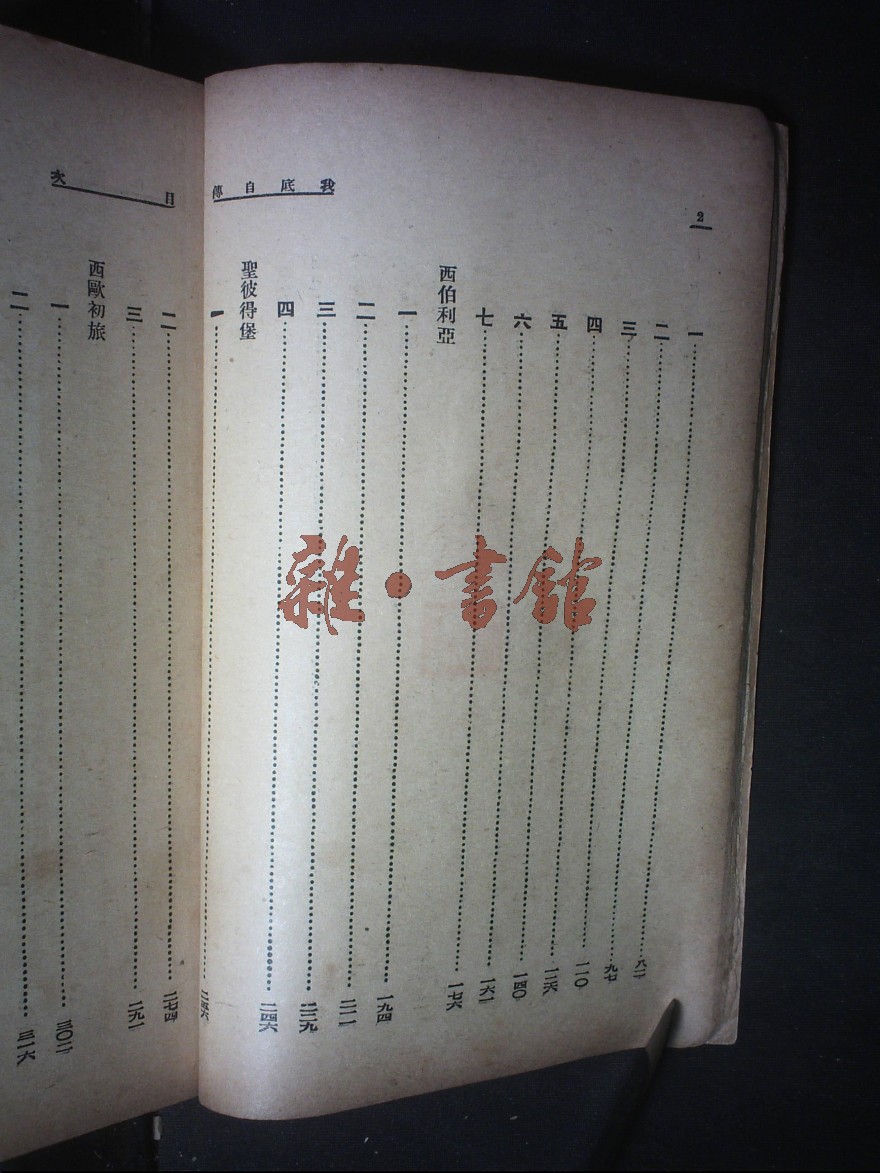 2
我底自傳
一……
二……九七
三……一一〇
四……一二六
五……一四〇
六……
七……一七六
西伯利亞
一……一九四
二……二一一
三……二二九
四……二四六
聖彼得堡
一……二五六
目次
二……二七四
三……二九一
西歐初旅
一……三〇二
二……三一六
雜·書館